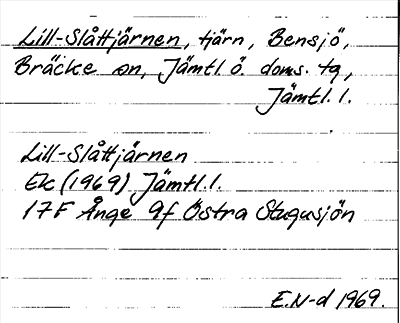 Lill-Slåttjärnen, tjärn, Bensjö,
Bräcke sn, Jämtl. ö. doms. tg,
Jämtl. l.
Lill-Slåttjärnen
Ek (1969) Jämtl. l.
17F Ånge 9f Östra Stugusjön
E.N-d 1969.